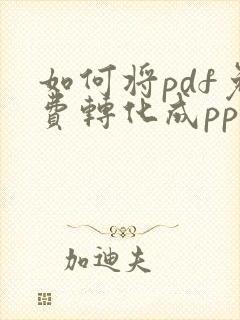 如何将pdf免
費轉化成pp
加迪夫